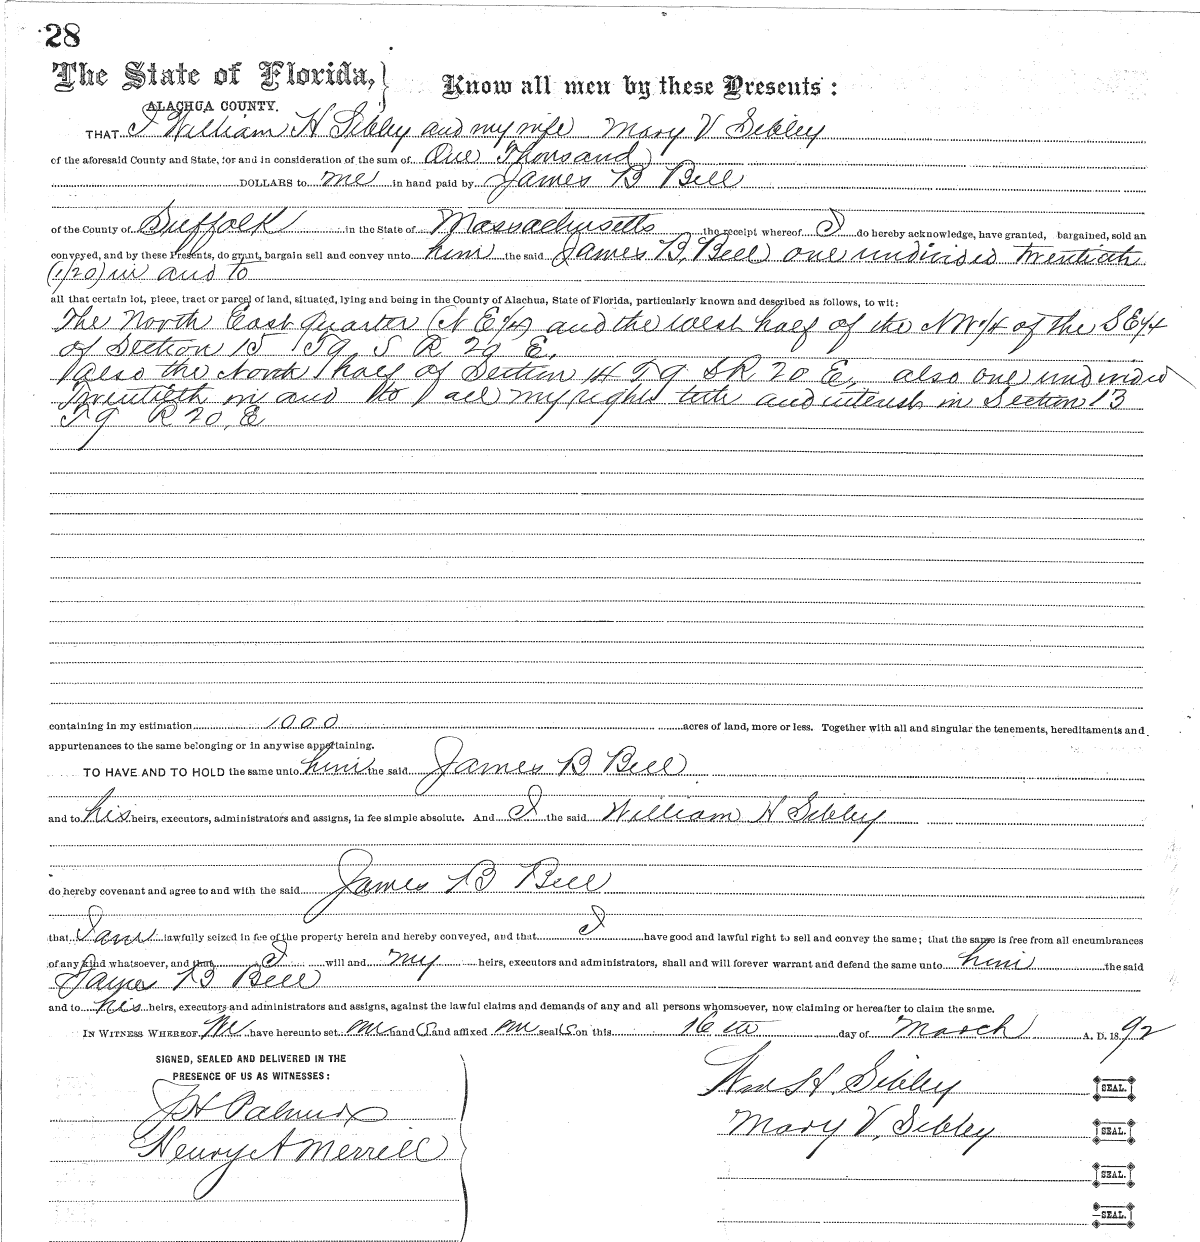 28
The State of Florida, Know all men by these Presents:
ALACHUA COUNTY.
THAT I William H Sibley and my wife Mary V Sibley
of the aforesaid County and State, for and in consideration of the sum of One Thousand
DOLLARS to me in hand paid by James B Bell
of the County of Suffolk in the State of Massachusetts the receipt whereof I do hereby acknowledge, have granted, bargained, sold an
conveyed, and by these Presents, do grant, bargain sell and convey unto him the said James B. Bell one undivided twentieth
(1/20) in and to
all that certain lot, piece, tract or parcel of land, situated, lying and being in the County of Alachua, State of Florida, particularly known and described as follows, to wit:
The North East Quarter (N E 1/4) and the West half of the NW 1/4 of the S E 1/4
of Section 15 T 9 S R 20 E.
also the North half of Section 14 T 9 S R 20 E, also one undivided
Twentieth in and to all my right title and interest in Section 13
T 9 R 20, E
containing in my estimation 1000 acres of land, more or less. Together with all and singular the tenements, hereditaments and
appurtenances to the same belonging or in anywise appertaining.
TO HAVE AND TO HOLD the same unto him the said James B Bell
and to his heirs, executors, administrators and assigns, in fee simple absolute. And I the said William H Sibley
do hereby covenant and agree to and with the said James B Bell
that I am lawfully seized in fee of the property herein and hereby conveyed, and that I have good and lawful right to sell and convey the same; that the same is free from all encumbrances
of any kind whatsoever, and that I will and my heirs, executors and administrators, shall and will forever warrant and defend the same unto him the said
James B Bell
and to his heirs, executors and administrators and assigns, against the lawful claims and demands of any and all persons whomsoever, now claiming or hereafter to claim the same.
IN WITNESS WHEREOF, We have hereunto set our hand s and affixed our seal s on this 16 th day of March A. D. 1892
SIGNED, SEALED AND DELIVERED IN THE
PRESENCE OF US AS WITNESSES:
Wm H. Sibley SEAL.
J H Palmer
Mary V. Sibley SEAL.
Henry A Merrill
SEAL.
SEAL.